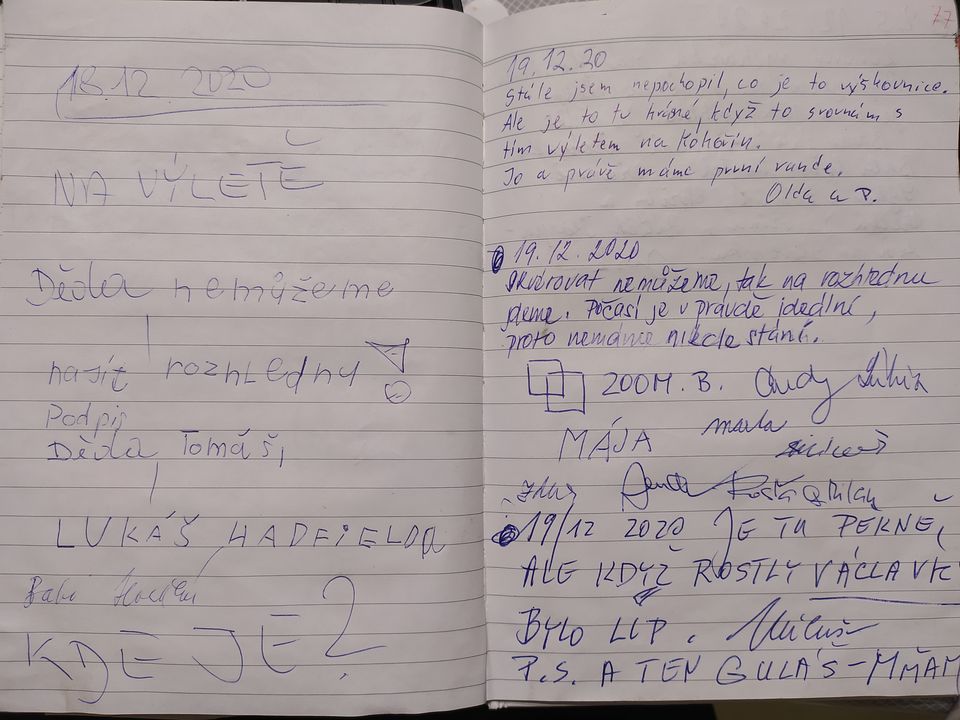 18.12. 2020
NA VÝLETĚ
Děda nemůžeme
najít rozhlednu !
Podpis
Děda Tomáš,
LUKÁŠ HADFIELDA
KDE JE?
77
19.12.20
Stále jsem nepochopil, co je to výškovnice.
Ale je to tu krásné, když to srovnám s
tím výletem na Kokořín.
Jo a právě máme první rande.
Olda a P.
19.12.2020
nemůžeme, tak na rozhlednu
jdeme. Počasí je vpravdě ideální,
proto nemáme nikde stání.
ZOOM. B. Andy
MÁJA
19/12 2020 JE TU PĚKNĚ,
ALE KDYŽ ROSTLY VÁCLAVK
BYLO LÍP. Miluš
P.S. A TEN GULÁŠ-MŇAM